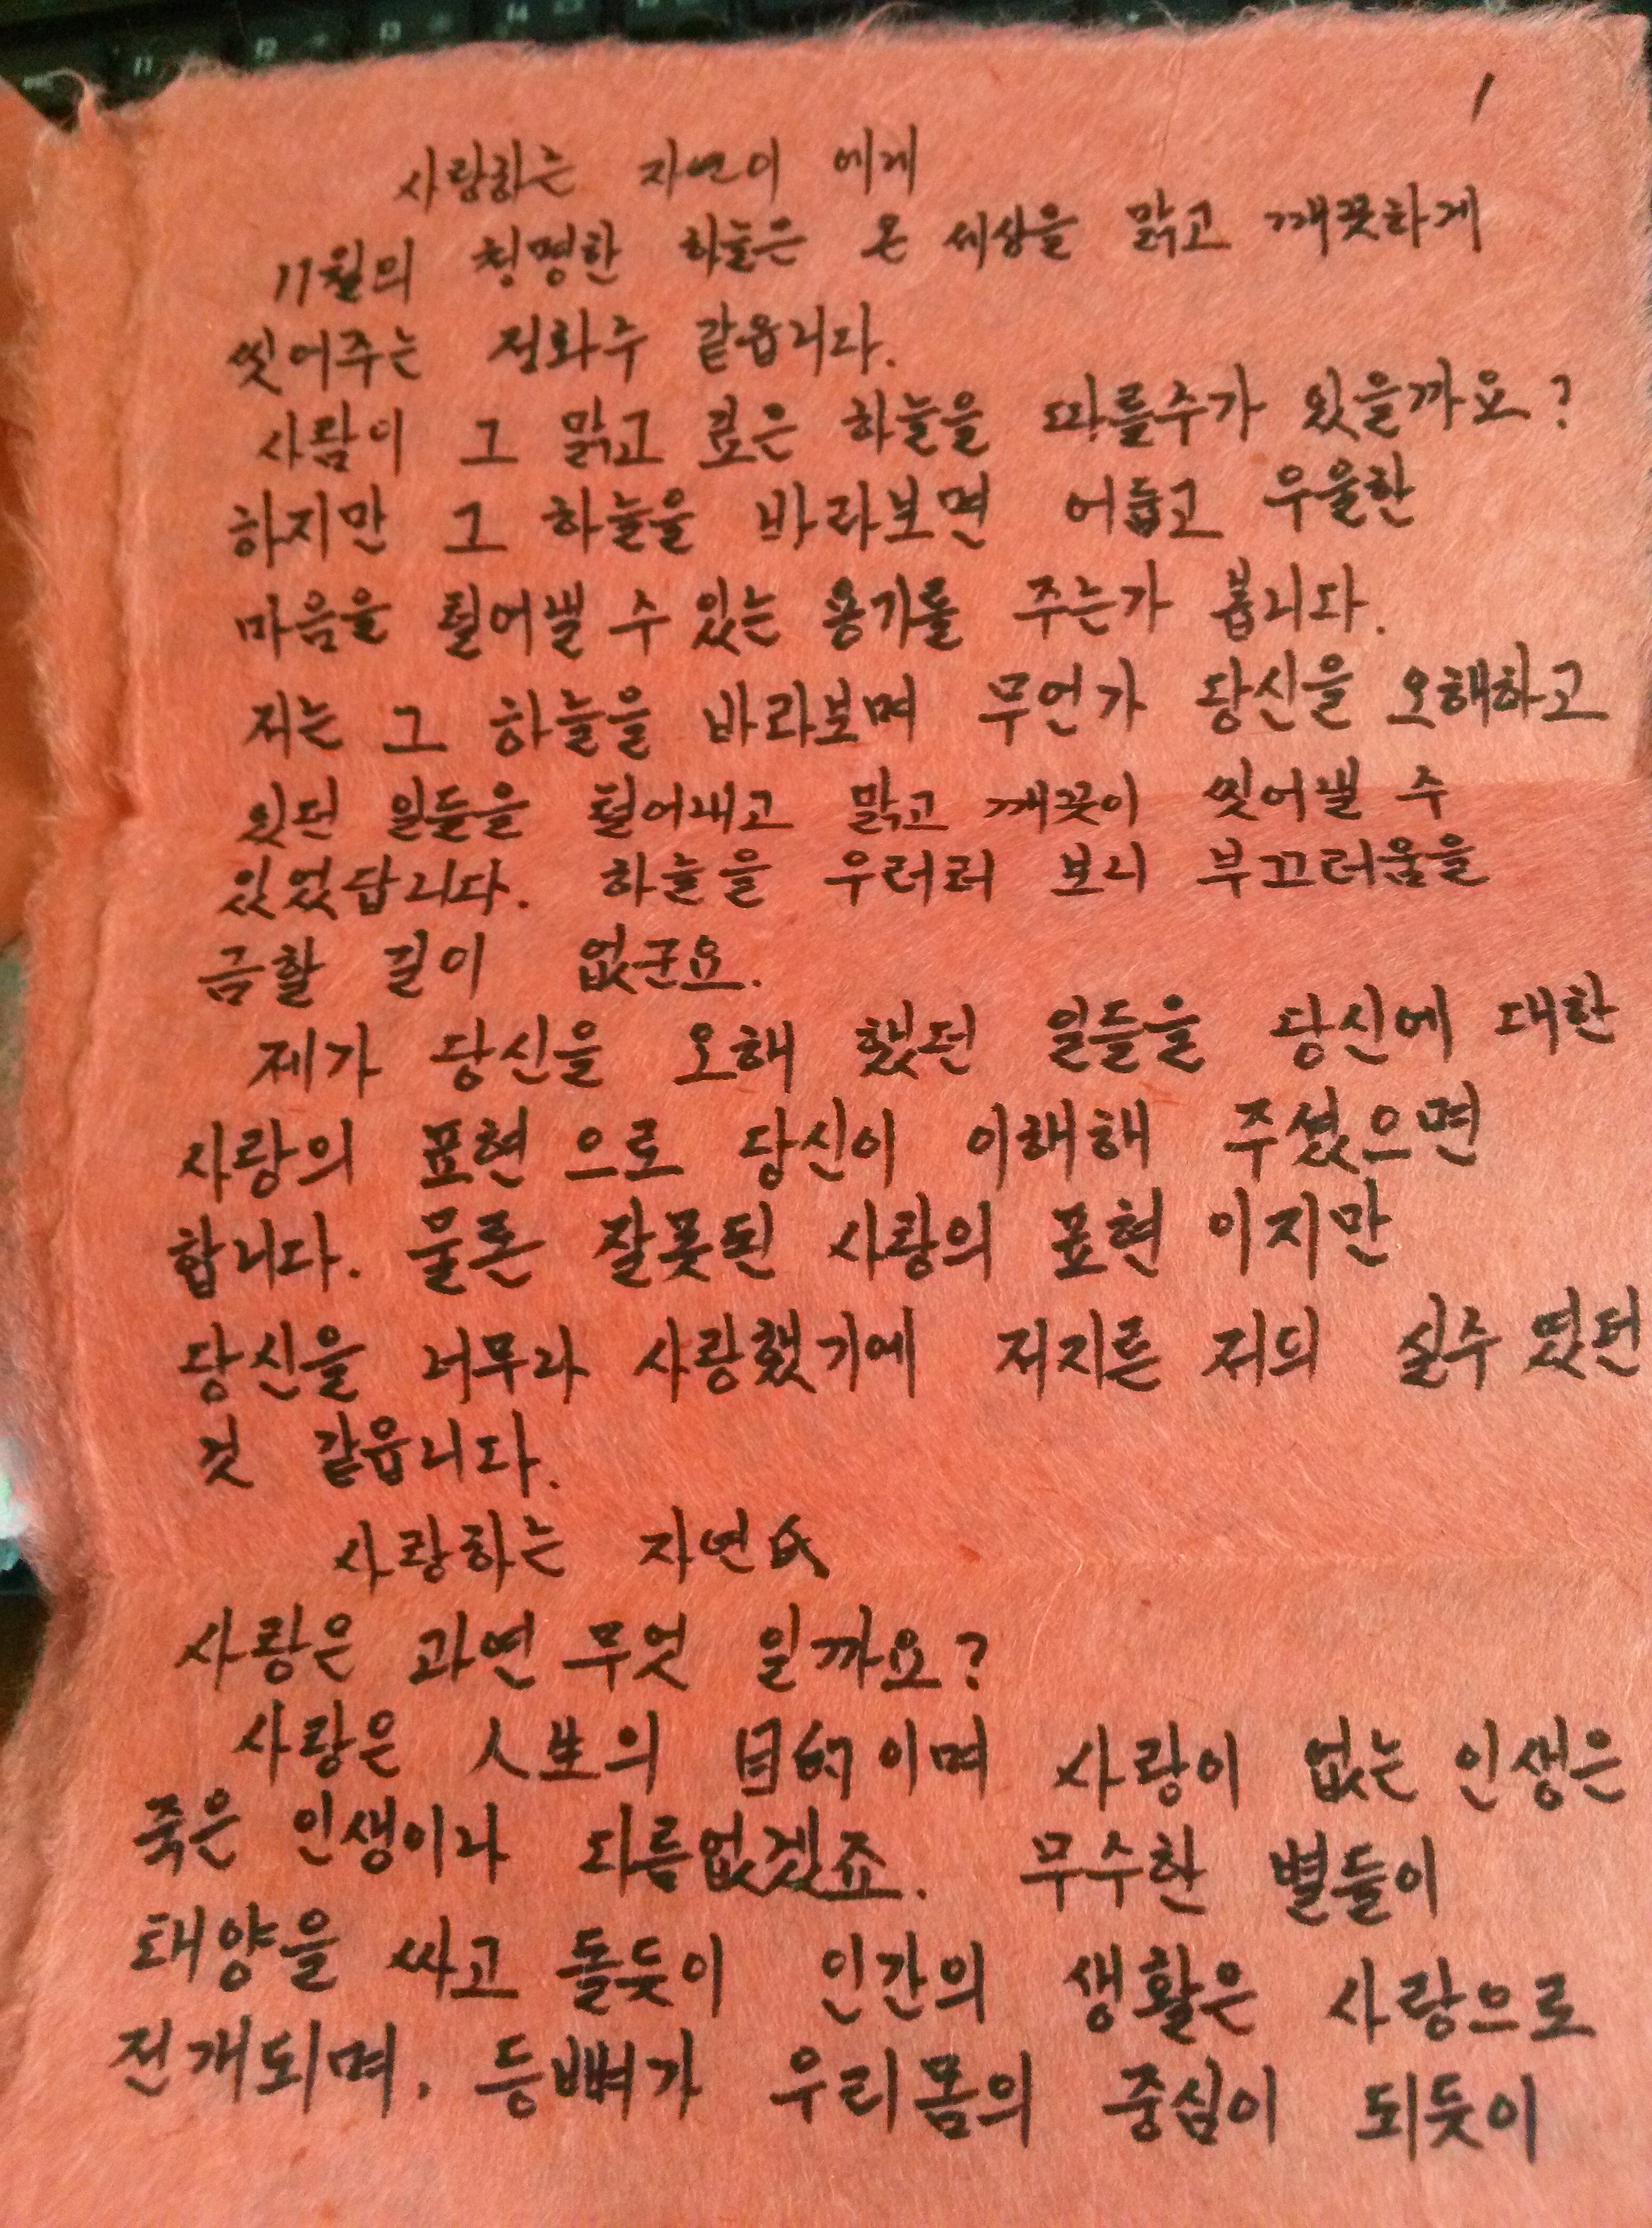 1
사랑하는 자연이 에게
11월의 청명한 하늘은 온 세상을 맑고 깨끗하게
씻어주는 정화수 같읍니다.
사람이 그 맑고 높은 하늘을 따를수가 있을까요?
하지만 그 하늘을 바라보면 어둡고 우울한
마음을 털어낼 수 있는 용기를 주는가 봅니다.
저는 그 하늘을 바라보며 무언가 당신을 오해하고
있던 일들을 털어내고 맑고 깨끗이 씻어낼 수
있었답니다. 하늘을 우러러 보니 부끄러움을
금할 길이 없군요.
제가 당신을 오해 했던 일들을 당신에 대한
사랑의 표현 으로 당신이 이해해 주셨으면
합니다. 물론 잘못된 사랑의 표현 이지만
당신을 너무나 사랑했기에 저지른 저의 실수 였던
것 같읍니다.
사랑하는 자연氏
사랑은 과연 무엇 일까요?
사랑은 人生의 目的이며 사랑이 없는 인생은
죽은 인생이나 다름없겠죠. 무수한 별들이
태양을 싸고 돌듯이 인간의 생활은 사랑으로
전개되며, 등뼈가 우리몸의 중심이 되듯이